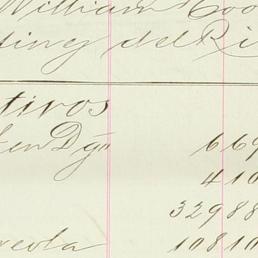 William Coo
ding del Ri
tivos
en Dn 669
410
32988
reola 10810